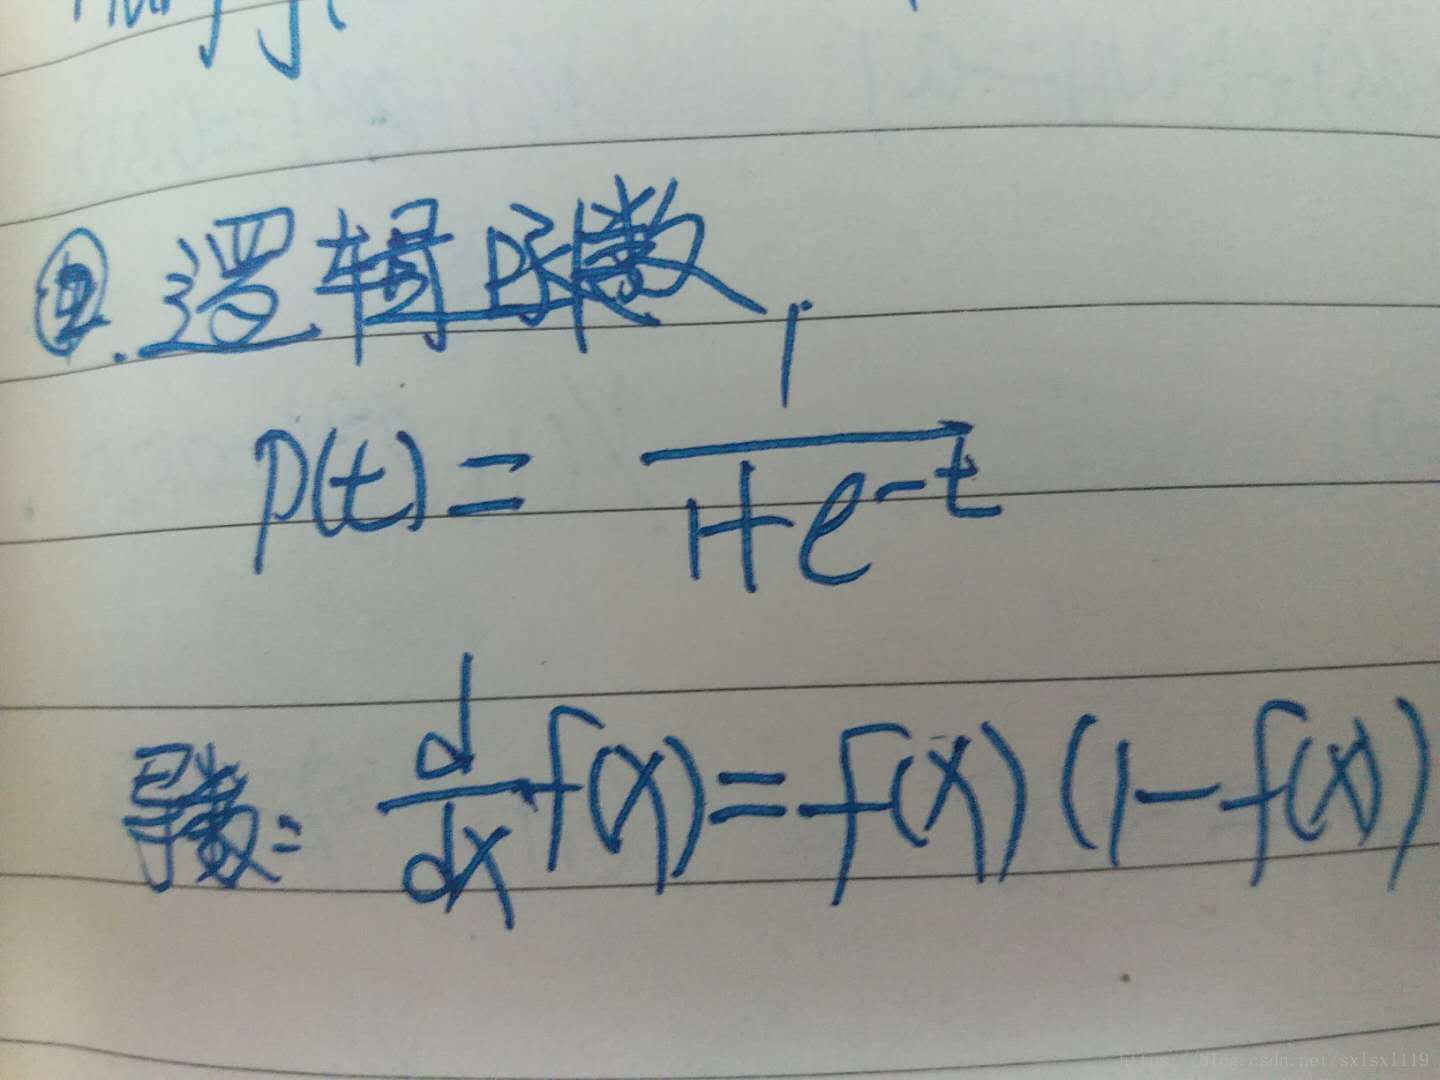 ②.逻辑函数
P(t) = \frac{1}{1+e^{-t}}
导数: \frac{d}{dx}f(x) = f(x)(1-f(x))
https://blog.csdn.net/sxlsxl119